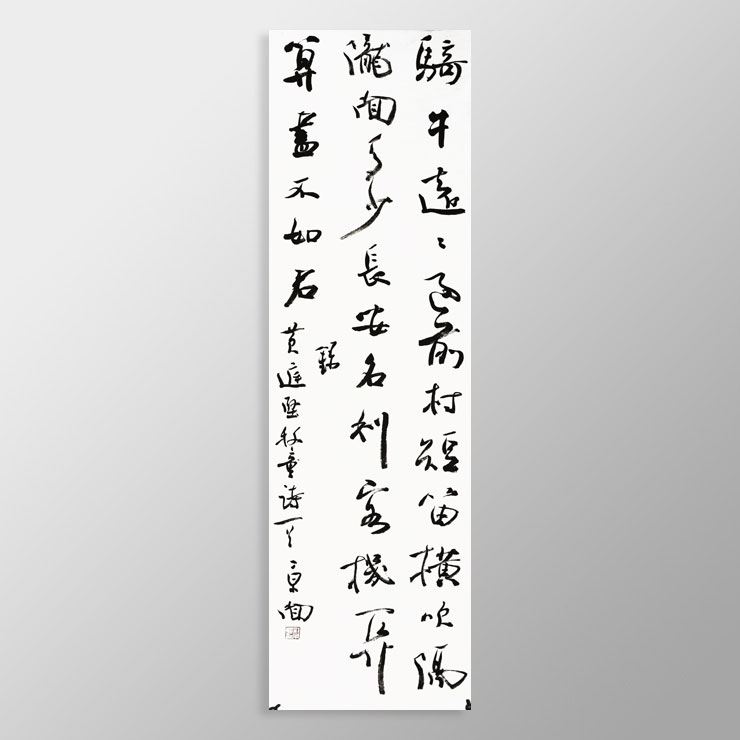 騎牛遠〻過前村短笛橫吹隔
隴聞多少長安名利客機關
算盡不如君
錄
黃庭堅牧童詩一首京聞